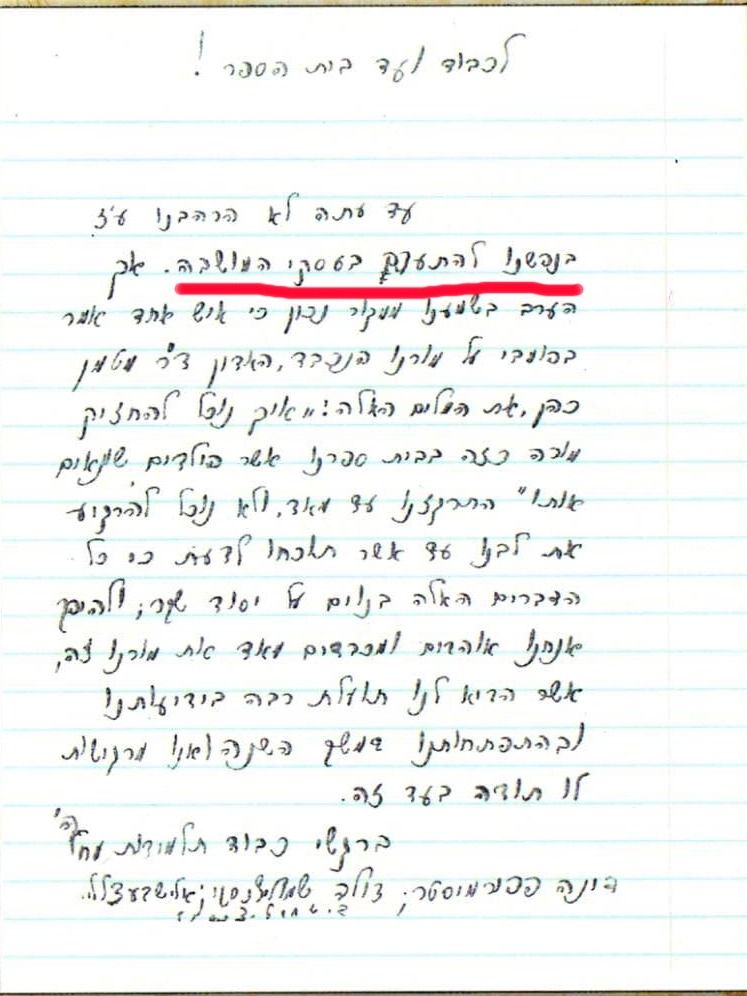 לכבוד ועד בית הספר!
עד עתה לא הרהבנו עז
בנפשנו להתערב בעסקי המושבה. אך
הערב בשמענו ממקור נכון כי איש אחד אמר
בפומבי על מורנו הנכבד, האדון ד"ר מטמן
כהן, את המלים האלה: "איך נוכל להחזיק
מורה כזה בבית ספרנו אשר הילדים שונאים
אותו" התרגזנו עד מאד, ולא נוכל להרגיע
את לבנו עד אשר תוכחו לדעת כי כל
הדברים האלה בנוים על יסוד שקר; ולהיפך
אנחנו אוהבים ומכבדים מאוד את מורנו זה,
אשר הביא לנו תועלת רבה בידיעותנו
ובהתפתחותנו במשך השנה ואנו מרגישות
לו תודה בעד זה.
ברגשי כבוד תלמידות
דינה פפירמיסטר; אלישבע